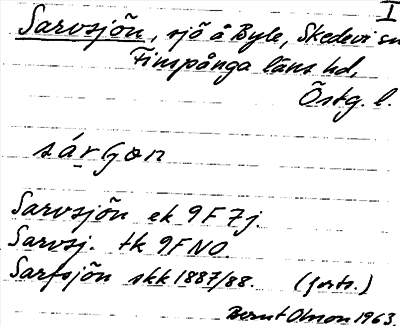 I
Sarvsjön, sjö å Byle, Skedevi sn
Finspånga läns hd,
Östg. l.
Sarvsjön ek 9F7j.
Sarvsj. tk 9FNO.
Sarfsjön skk 1887/88. (forts.)
Bernt Olsson 1963.